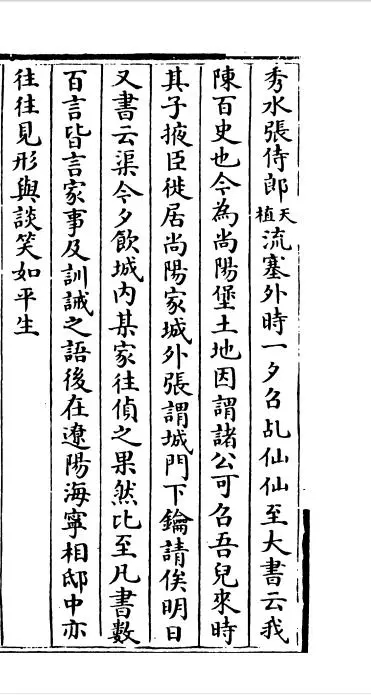 秀水張侍郎天植流塞外時一夕召乩仙仙至大書云我
陳百史也今為尚陽堡土地因謂諸公可召吾兒來時
其子掖臣徙居尚陽家城外張謂城門下鑰請俟明日
又書云渠今夕飲城内某家往偵之果然比至凡書數
百言皆言家事及訓誡之語後在遼陽海寧相邸中亦
往往見形與談笑如平生